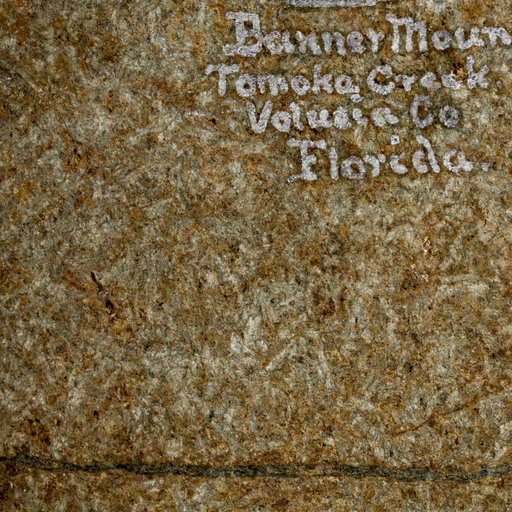 Banner Moun
Tomoka Creek.
Volusia Co
Florida.